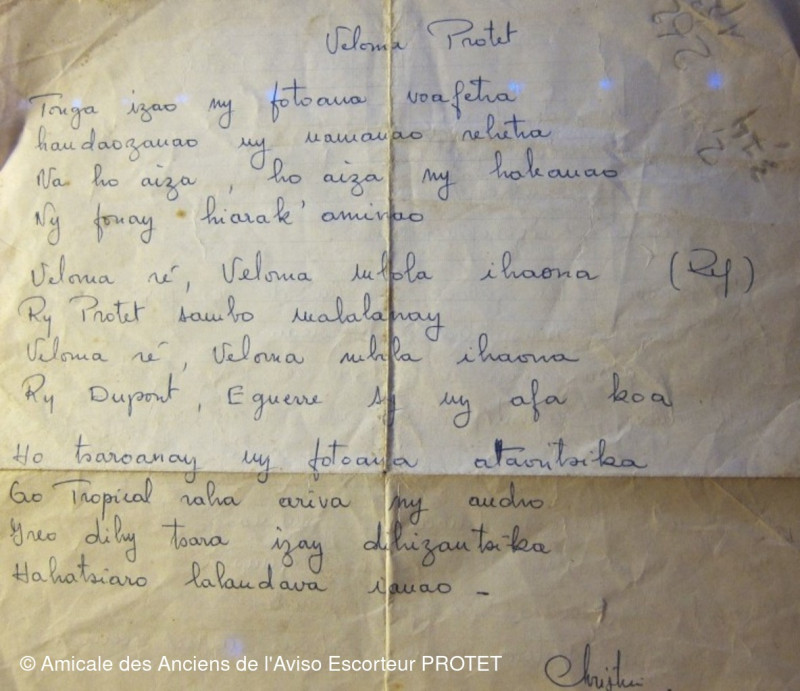 Veloma Protet
Tonga izao ny fotoana voafetra
handaozanao ny namanao rehetra
Na ho aiza, ho aiza ny hakanao
Ny fonay hiarak' aminao
Veloma ré, Veloma mbola ihaona (Ry)
Ry Protet sambo malalanay
Veloma ré, Veloma mbola ihaona
Ry Dupont, Eguerre sy ny afa koa
Ho tsaroanay ny fotoana ataontsika
Go Tropical raha ariva ny andro
Ireo dihy tsara izay dihizantsika
Hahatsiaro lalandava ianao -
© Amicale des Anciens de l'Aviso Escorteur PROTET